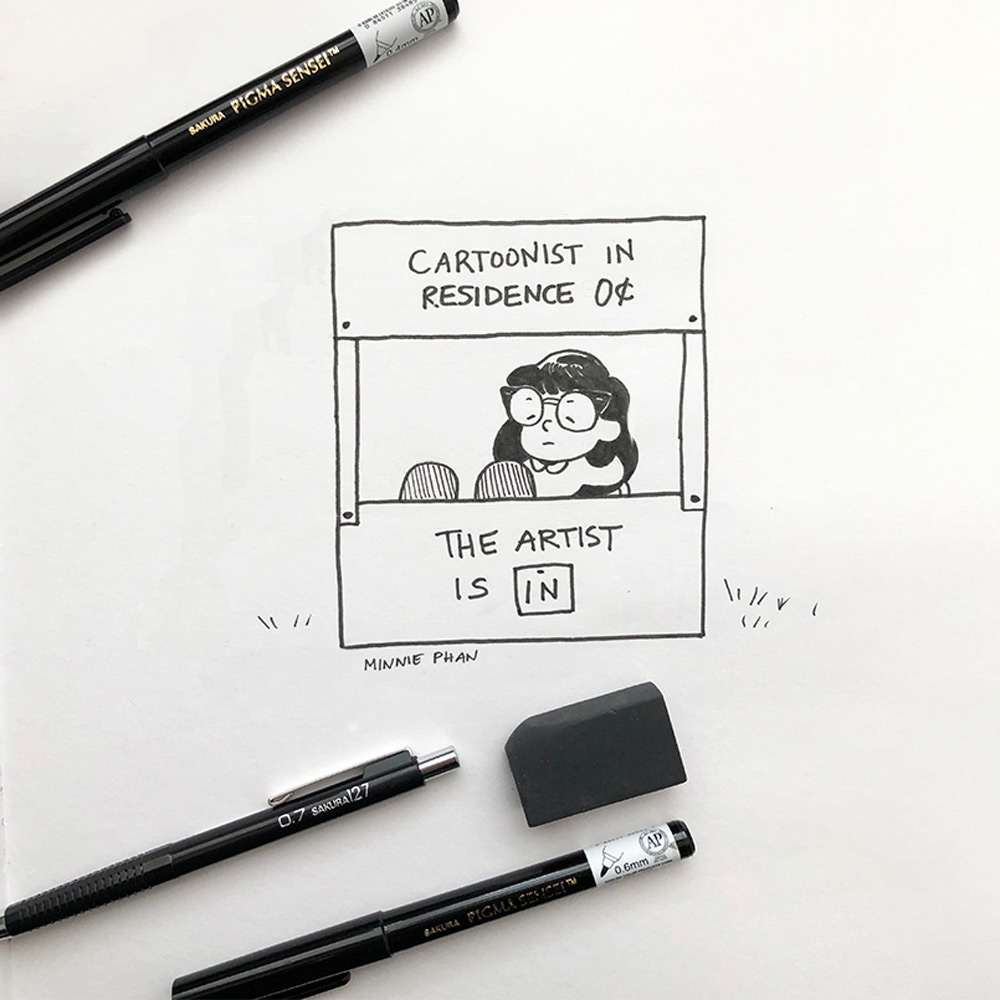 AP
0.4mm
SAKURA PIGMA SENSEI™
CARTOONIST IN
RESIDENCE 0¢
THE ARTIST
IS IN
MINNIE PHAN
0.7 SAKURA 127
AP
0.6mm
SAKURA PIGMA SENSEI™